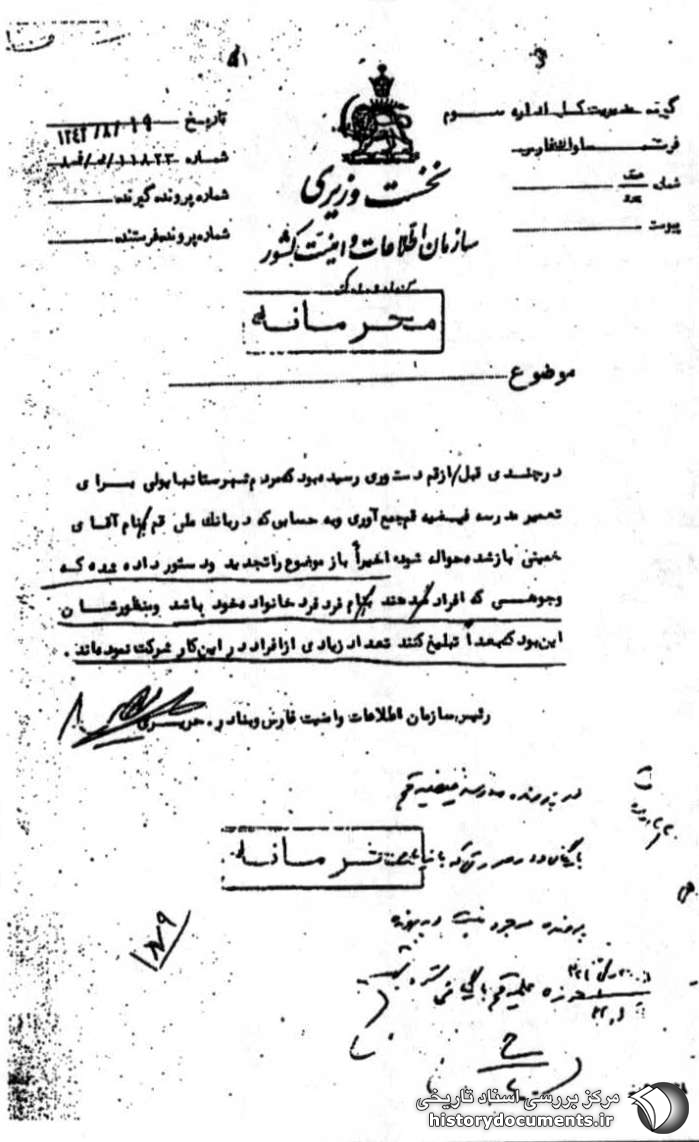 گیرنده مدیریت کل اداره سوم
فرستنده ساواک فارس
شماره
پیوست
تاریخ ۱۳۴۲/۸/۱۹
شماره ۱۱۸۲۳
شماره پرونده گیرنده
شماره پرونده فرستنده
نخست وزیری
سازمان اطلاعات و امنیت کشور
محرمانه
موضوع
درچندی قبل از قم دستوری رسیده بود که مردم شهرستانها پولی برای
تعمیر مدرسه فیضیه قم جمع آوری وبه حسابی که دربانک ملی قم بنام آقای
خمینی باز شده حواله شود اخیراً باز موضوع را تجدید ودستور داده شده که
وجوهی که افراد میدهند بنام فرد فرد خانواده خود باشد ومنظورشان
این بود که بعداً تبلیغ کنند تعداد زیادی از افراد در این کار شرکت نموده اند .
رئیس سازمان اطلاعات وامنیت فارس وبنادر . حریری
در پرونده مدرسه فیضیه قم
بایگانی و در صورتی که
محرمانه
پرونده موجود نیست در پرونده
حوزه علمیه قم بایگانی
مرکز بررسی اسناد تاریخی
historydocuments.ir